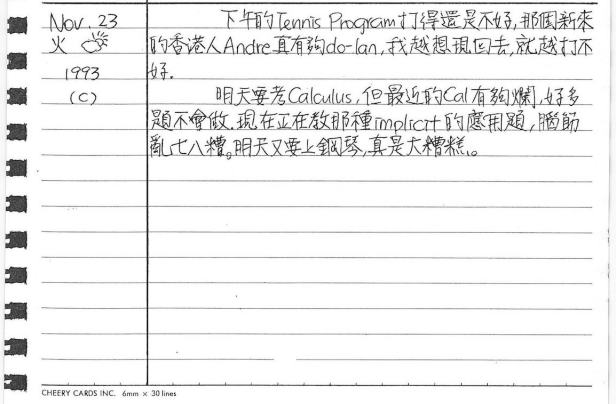 Nov. 23
火
1993
(C)
下午的Tennis Program打得還是不好,那個新來
的香港人Andre真有夠do-lan,我越想現回去,就越打不
好.
明天要考Calculus,但最近的Cal有夠爛,好多
題不會做.現在正在教那種implicit的應用題,腦筋
亂七八糟。明天又要上鋼琴,真是大糟糕。
CHEERY CARDS INC. 6mm × 30 lines